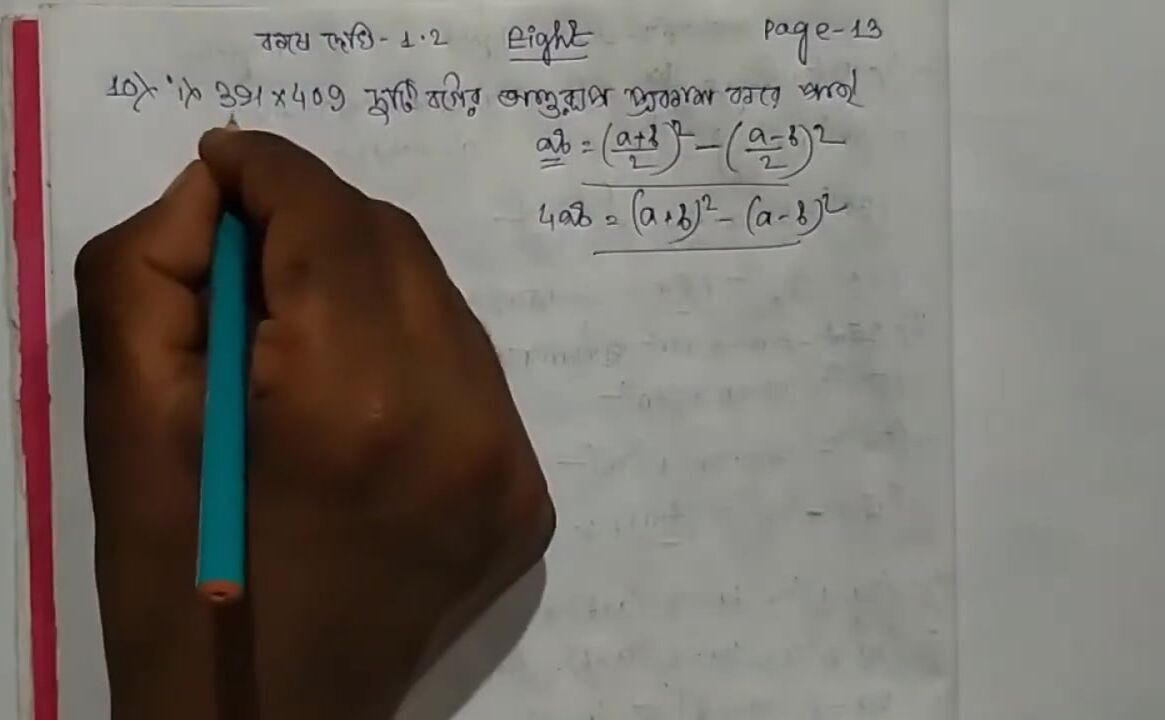 কষে দেখি - 1.2 Eight Page-13
10) i) 391 x 409 দুটি বর্গের অন্তররূপে প্রকাশ করে পাই
ab = (a+b/2)² - (a-b/2)²
4ab = (a+b)² - (a-b)²